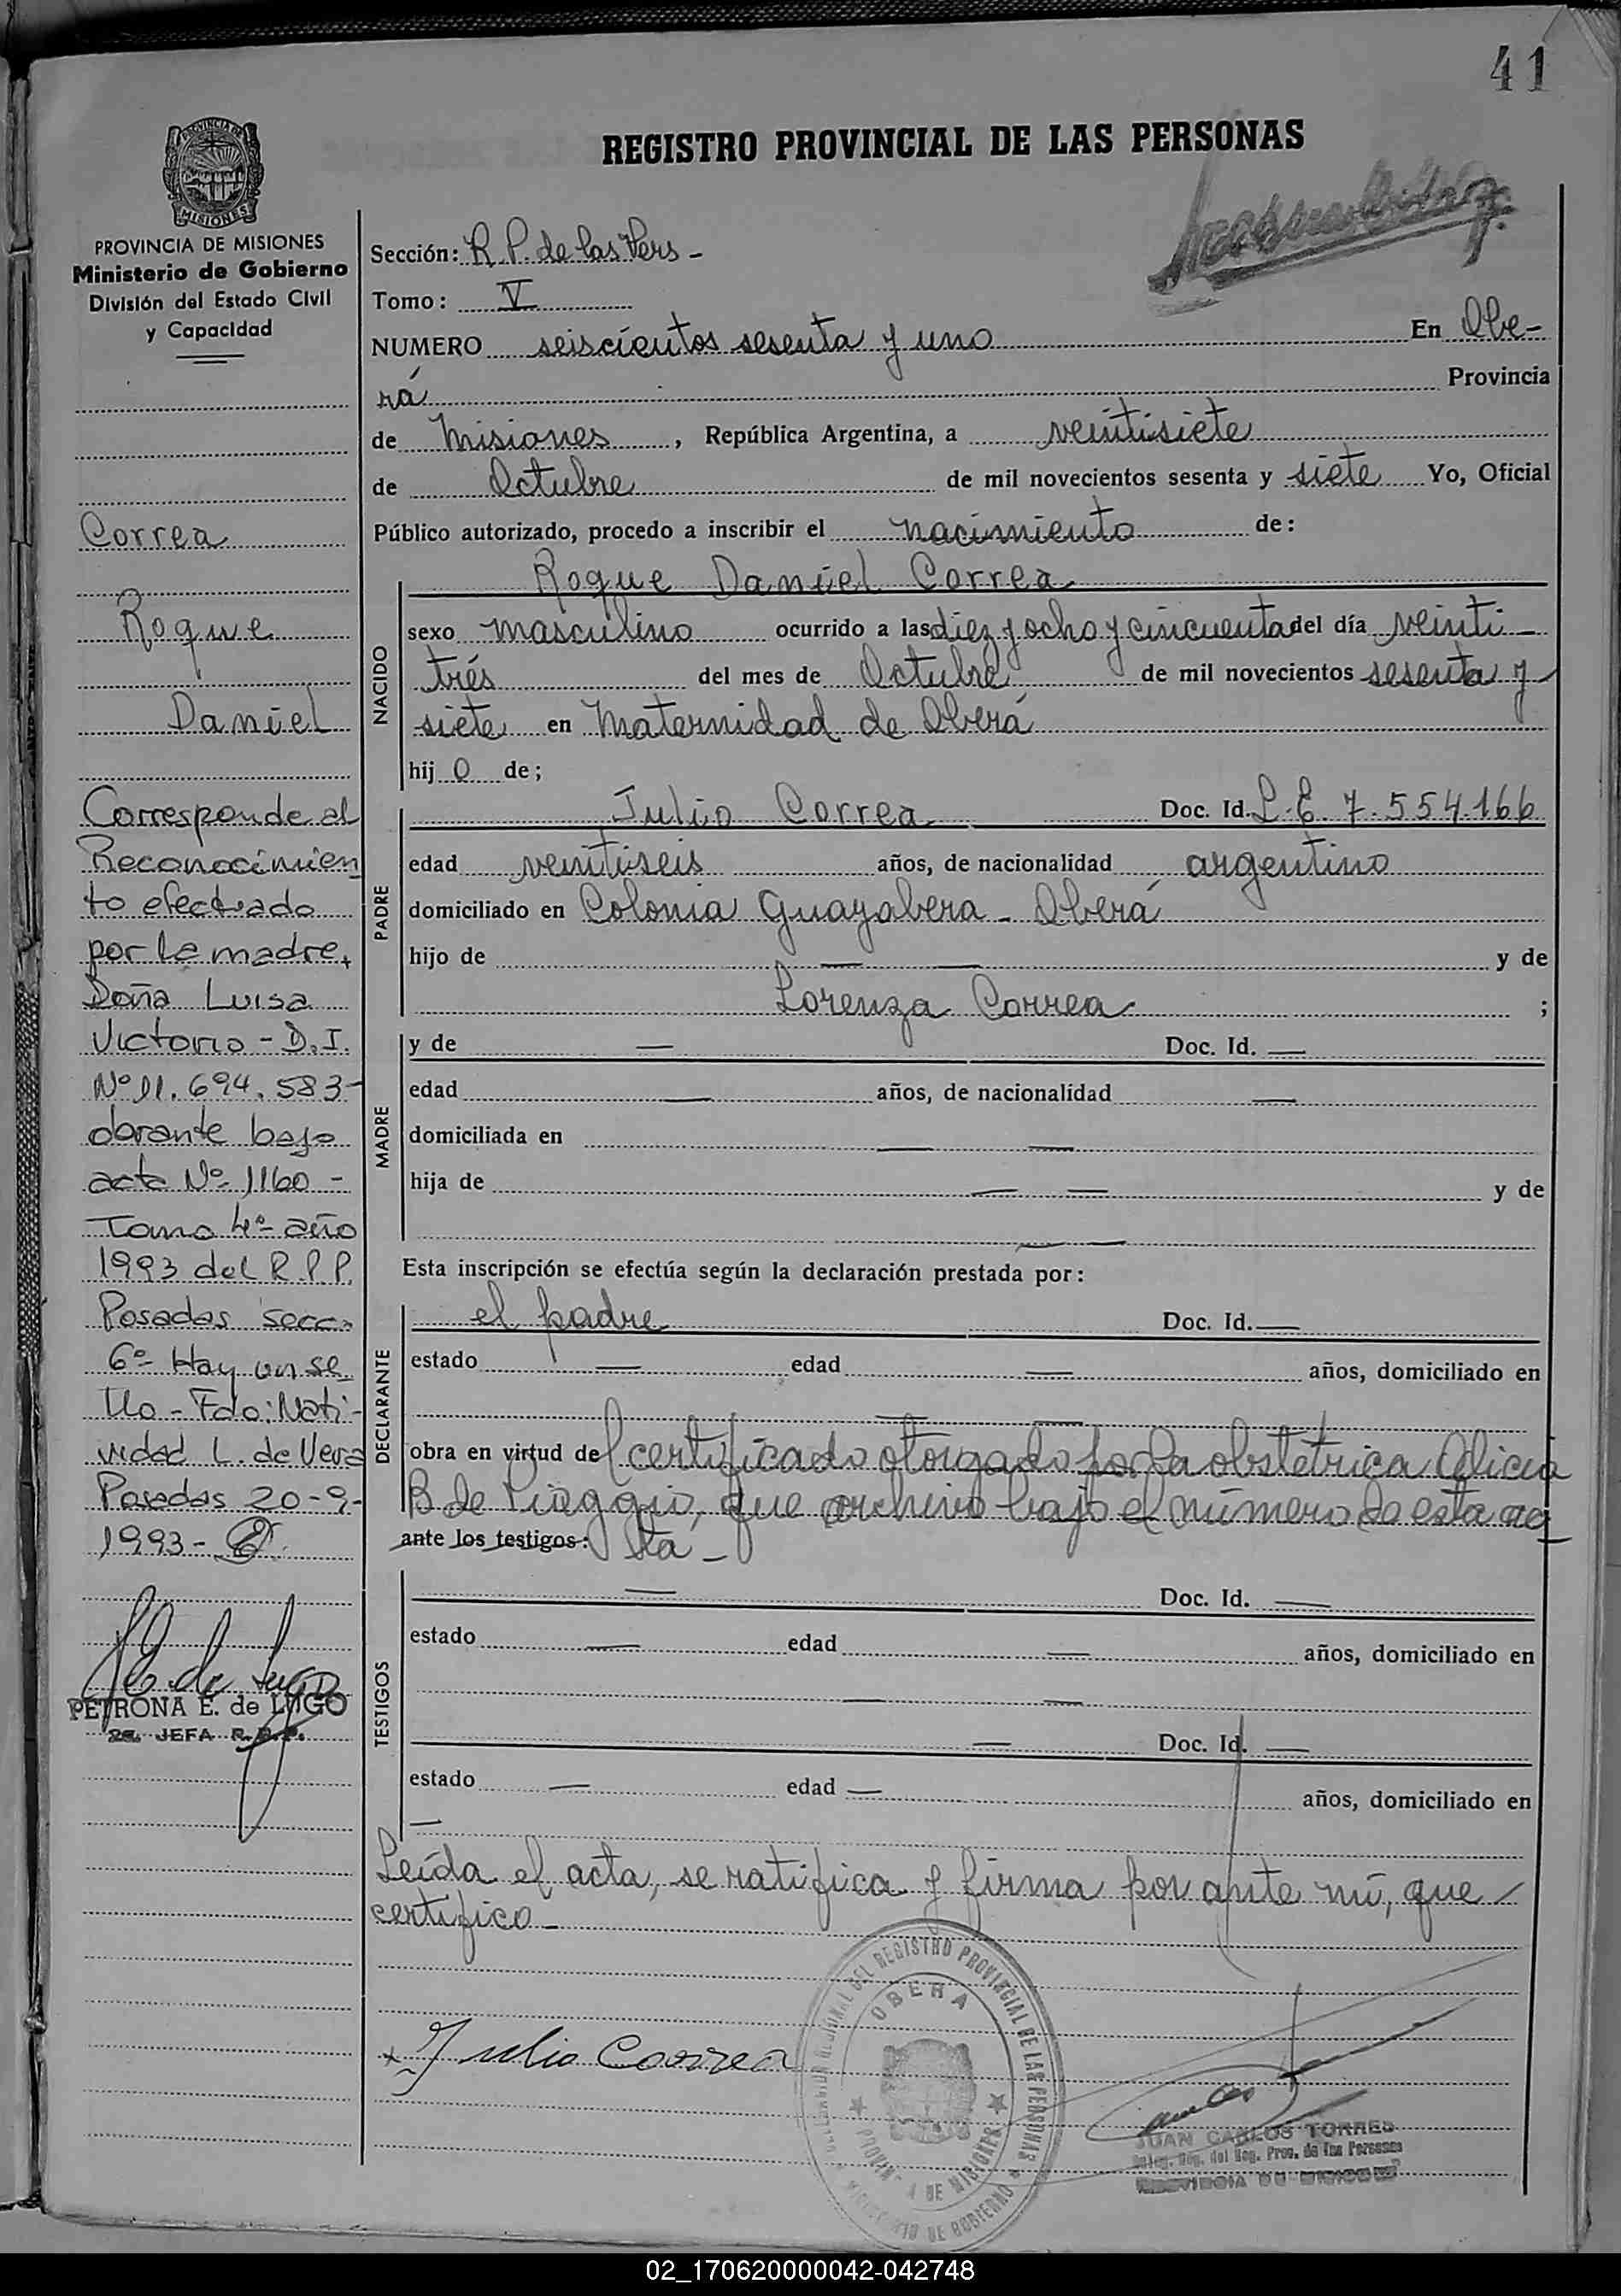 41
REGISTRO PROVINCIAL DE LAS PERSONAS
PROVINCIA DE
MISIONES
PROVINCIA DE MISIONES
Ministerio de Gobierno
División del Estado Civil
y Capacidad
Correa
Roque
Daniel
Corresponde al
Reconocimien
to efectuado
por la madre,
Doña Luisa
Victorio - D.I.
Nº 11.694.583-
obrante bajo
acta Nº 1160 -
Tomo 4º año
1993 del R.P.P.
Posadas Secc.
6º- Hay un se
llo - Fdo: Nati-
vidad L. de Vera
Posadas 20-9-
1993-
PETRONA E. de LUGO
2a. JEFA R.P.P.
Sección: R.P. de las Pers -
Tomo: V
NUMERO seiscientos sesenta y uno En Obe-
rá Provincia
de Misiones, República Argentina, a veintisiete
de Octubre de mil novecientos sesenta y siete Yo, Oficial
Público autorizado, procedo a inscribir el nacimiento de:
Roque Daniel Correa
NACIDO
sexo masculino ocurrido a las diez y ocho y cincuenta del día veinti-
trés del mes de Octubre de mil novecientos sesenta y
siete en Maternidad de Oberá
hij o de;
PADRE
Julio Correa Doc. Id. L.E. 7.554.166
edad veintiseis años, de nacionalidad argentino
domiciliado en Colonia Guayabera - Oberá
hijo de — — y de
Lorenza Correa ;
MADRE
y de — Doc. Id. —
edad — años, de nacionalidad —
domiciliada en — —
hija de — — y de
— —
Esta inscripción se efectúa según la declaración prestada por:
DECLARANTE
el padre Doc. Id. —
estado — edad — años, domiciliado en
— —
obra en virtud del certificado otorgado por la obstetrica Alicia
B de Piaggio, que archivo bajo el número de esta ac
ante los testigos: ta -
TESTIGOS
— Doc. Id. —
estado — edad — años, domiciliado en
— —
— Doc. Id. —
estado — edad — años, domiciliado en
—
Leída el acta, se ratifica y firma por ante mí, que
certifico -
x Julio Correa
REGIONAL DEL REGISTRO PROVINCIAL DE LAS PERSONAS
OBERA
MINISTERIO DE GOBIERNO
JUAN CARLOS TORRES
Deleg. Reg. del Reg. Prov. de las Personas
PROVINCIA DE MISIONES
02_170620000042-042748